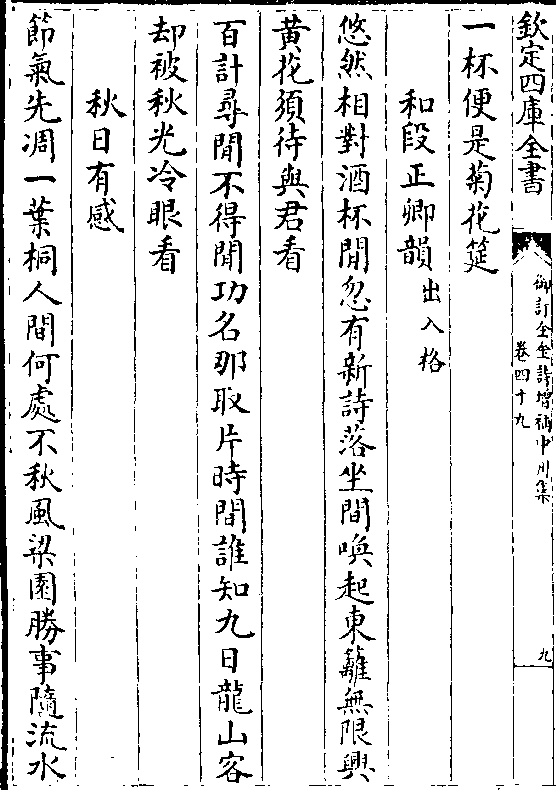 欽定四庫全書
御訂全金詩增補中州集
卷四十九
九
一杯便是菊花筵
和段正卿韻出入格
悠然相對酒杯閒忽有新詩落坐間喚起東籬無限興
黃花須待與君看
百計尋閒不得閒功名那取片時間誰知九日龍山客
却被秋光冷眼看
秋日有感
節氣先凋一葉桐人間何處不秋風梁園勝事隨流水